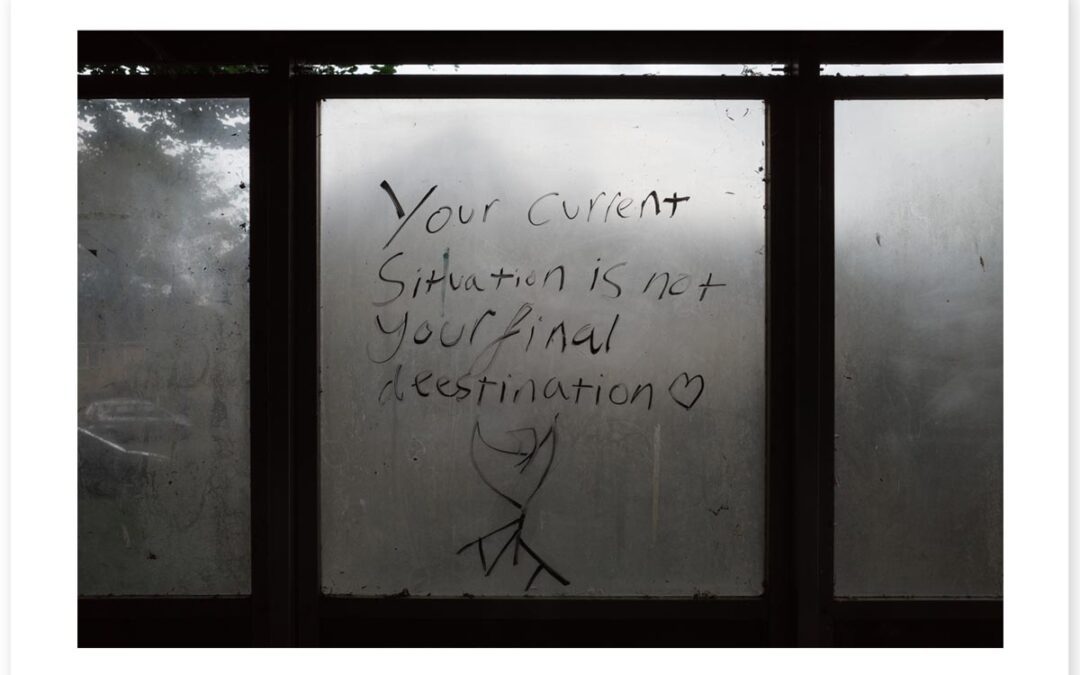 Your current
Situation is not
your final
deestination ♡